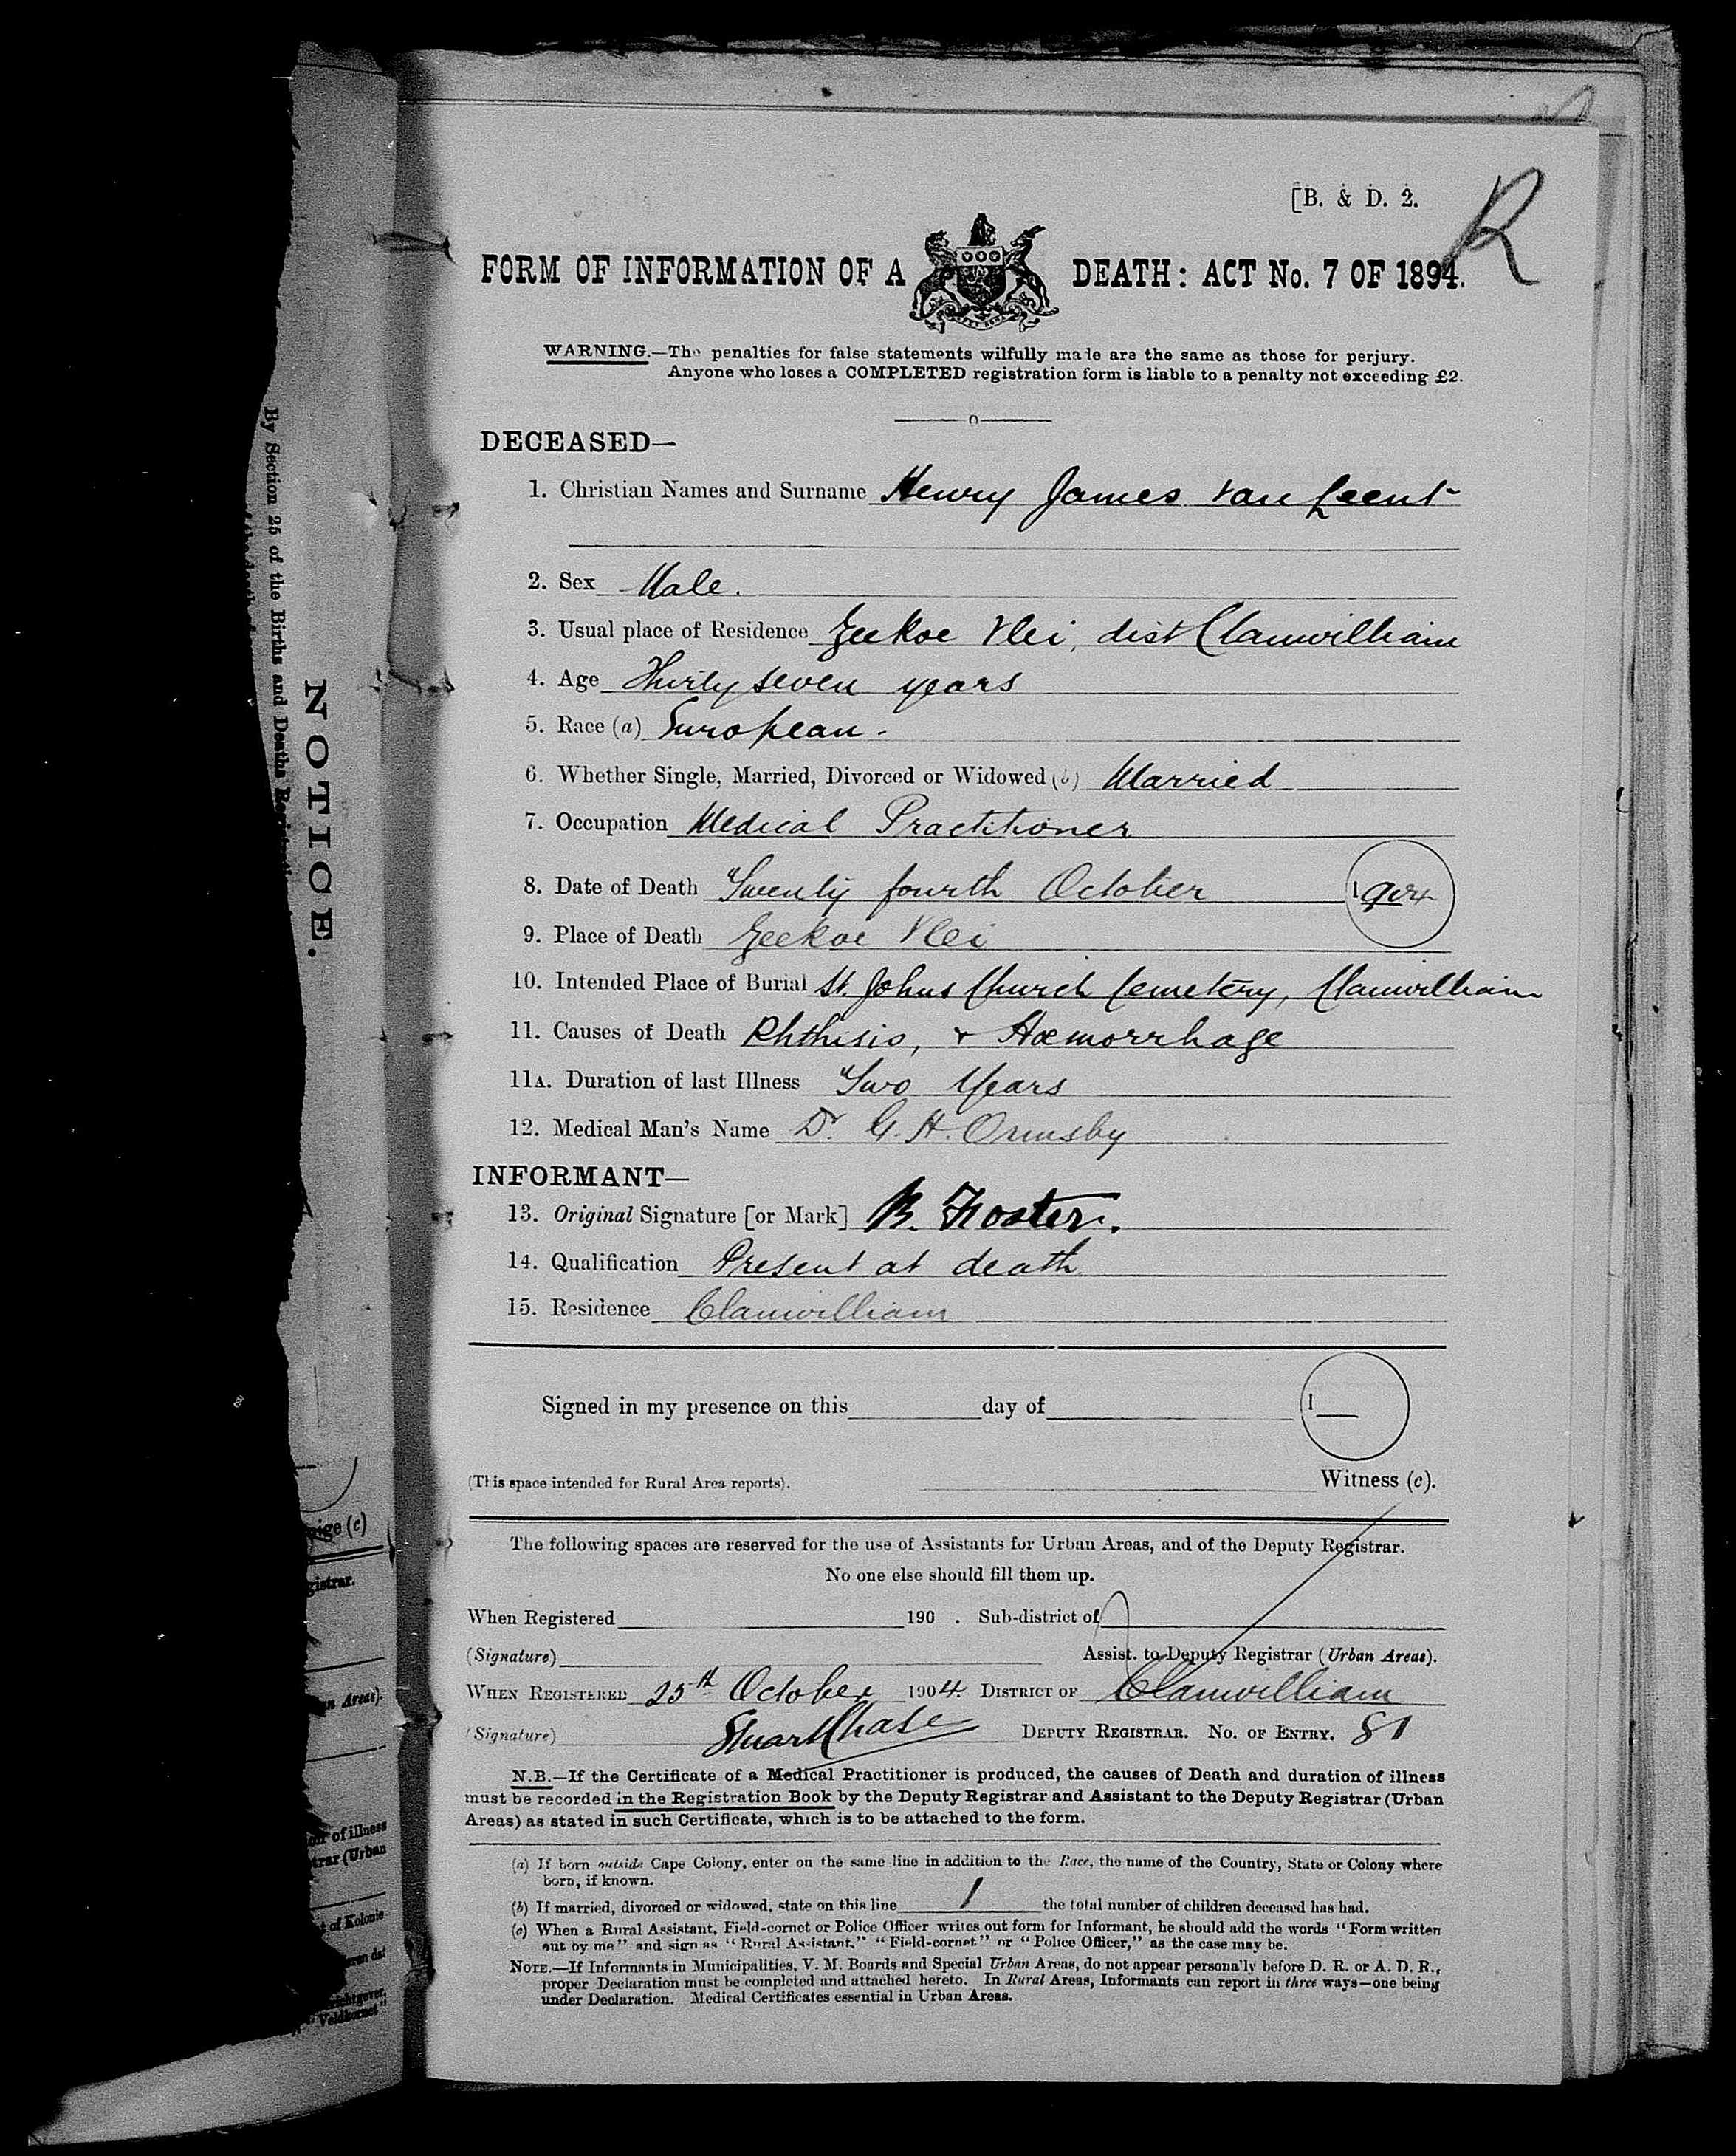 [B. & D. 2.
R
FORM OF INFORMATION OF A DEATH: ACT No. 7 OF 1894.
WARNING.—The penalties for false statements wilfully made are the same as those for perjury.
Anyone who loses a COMPLETED registration form is liable to a penalty not exceeding £2.
DECEASED—
1. Christian Names and Surname Henry James van Leent
2. Sex Male.
3. Usual place of Residence Zeekoe Vlei, dist Clanwilliam
4. Age Thirty seven years
5. Race (a) European -
6. Whether Single, Married, Divorced or Widowed (b) Married
7. Occupation Medical Practitioner
8. Date of Death Twenty fourth October 1904
9. Place of Death Zeekoe Vlei
10. Intended Place of Burial St. Johns Church Cemetery, Clanwilliam
11. Causes of Death Phthisis, & Hæmorrhage
11A. Duration of last Illness Two Years
12. Medical Man's Name Dr. G. H. Ormsby
INFORMANT—
13. Original Signature [or Mark] B.
14. Qualification Present at death
15. Residence Clanwilliam
Signed in my presence on this day of 1
(This space intended for Rural Area reports). Witness (c).
The following spaces are reserved for the use of Assistants for Urban Areas, and of the Deputy Registrar.
No one else should fill them up.
When Registered 190 . Sub-district of
(Signature) Assist. to Deputy Registrar (Urban Areas).
WHEN REGISTERED 25th October 1904. DISTRICT OF Clanwilliam
(Signature) Stuart Chase DEPUTY REGISTRAR. NO. OF ENTRY. 81
N.B.—If the Certificate of a Medical Practitioner is produced, the causes of Death and duration of illness
must be recorded in the Registration Book by the Deputy Registrar and Assistant to the Deputy Registrar (Urban
Areas) as stated in such Certificate, which is to be attached to the form.
(a) If born outside Cape Colony, enter on the same line in addition to the Race, the name of the Country, State or Colony where
born, if known.
(b) If married, divorced or widowed, state on this line 1 the total number of children deceased has had.
(c) When a Rural Assistant, Field-cornet or Police Officer writes out form for Informant, he should add the words "Form written
out by me" and sign as "Rural Assistant," "Field-cornet" or "Police Officer," as the case may be.
NOTE.—If Informants in Municipalities, V. M. Boards and Special Urban Areas, do not appear personally before D. R. or A. D. R.,
proper Declaration must be completed and attached hereto. In Rural Areas, Informants can report in three ways—one being
under Declaration. Medical Certificates essential in Urban Areas.
NOTICE.
By Section 25 of the Births and Deaths
(c)
gistrar.
Areas).
of illness
trar (Urban
of Kolonie
dat
Veldkornet"